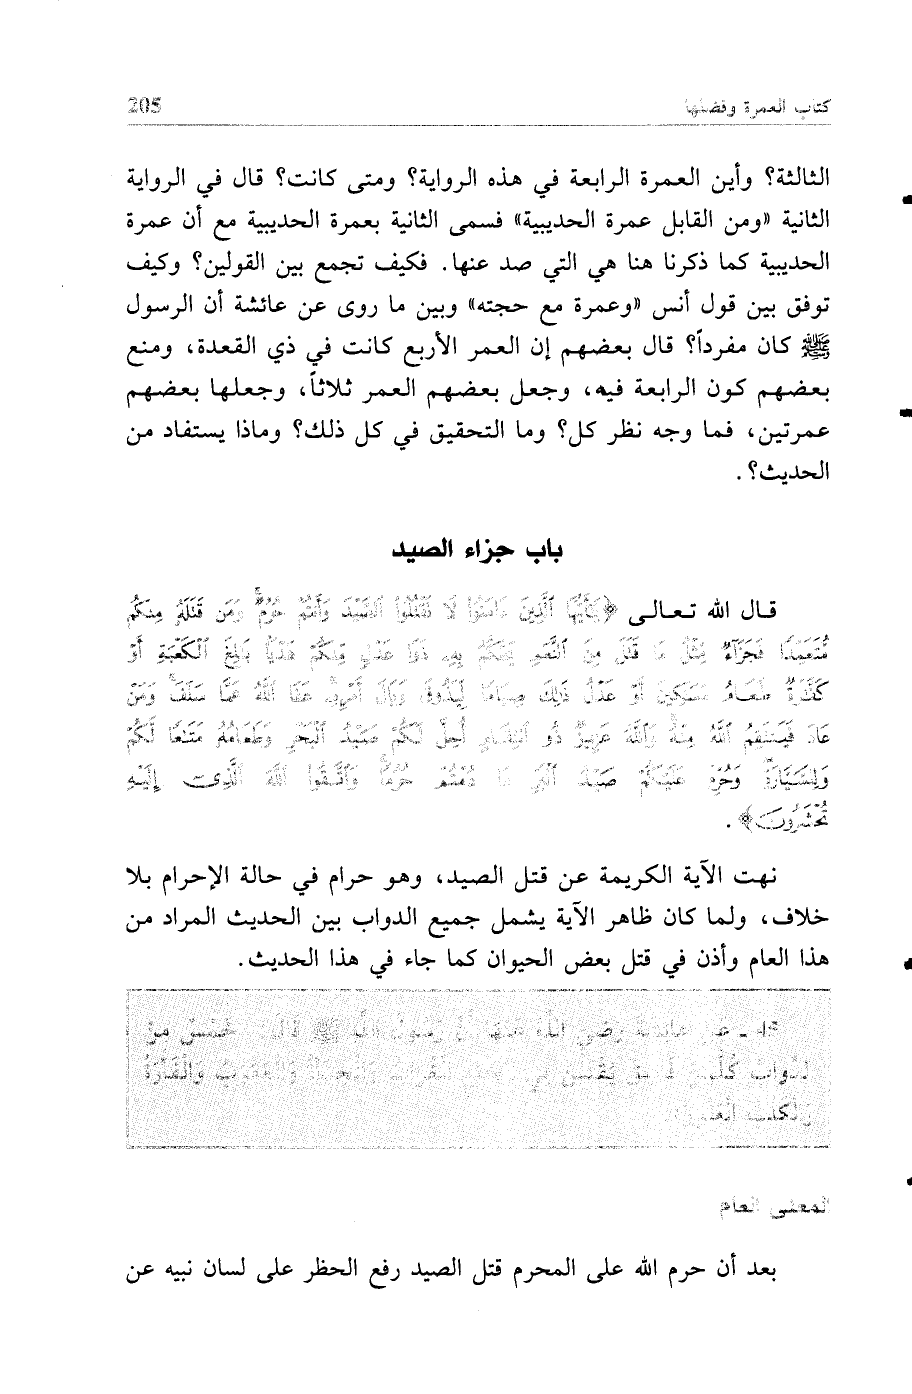 كتاب العمرة وفضلها 205
الثالثة؟ وأين العمرة الرابعة في هذه الرواية؟ ومتى كانت؟ قال في الرواية
الثانية «ومن القابل عمرة الحديبية» فسمى الثانية بعمرة الحديبية مع أن عمرة
الحديبية كما ذكرنا هنا هي التي صد عنها. فكيف تجمع بين القولين؟ وكيف
توفق بين قول أنس «وعمرة مع حجته» وبين ما روى عن عائشة أن الرسول
ﷺ كان مفرداً؟ قال بعضهم إن العمر الأربع كانت في ذي القعدة، ومنع
بعضهم كون الرابعة فيه، وجعل بعضهم العمر ثلاثاً، وجعلها بعضهم
عمرتين، فما وجه نظر كل؟ وما التحقيق في كل ذلك؟ وماذا يستفاد من
الحديث؟.
باب جزاء الصيد
قال الله تعالى ﴿يَٰٓأَيُّهَا ٱلَّذِينَ ءَامَنُوا۟ لَا تَقْتُلُوا۟ ٱلصَّيْدَ وَأَنتُمْ حُرُمٌ ۚ وَمَن قَتَلَهُۥ مِنكُم
مُّتَعَمِّدًا فَجَزَآءٌ مِّثْلُ مَا قَتَلَ مِنَ ٱلنَّعَمِ يَحْكُمُ بِهِۦ ذَوَا عَدْلٍ مِّنكُمْ هَدْيًۢا بَٰلِغَ ٱلْكَعْبَةِ أَوْ
كَفَّٰرَةٌ طَعَامُ مَسَٰكِينَ أَوْ عَدْلُ ذَٰلِكَ صِيَامًا لِّيَذُوقَ وَبَالَ أَمْرِهِۦ ۗ عَفَا ٱللَّهُ عَمَّا سَلَفَ ۚ وَمَنْ
عَادَ فَيَنتَقِمُ ٱللَّهُ مِنْهُ ۗ وَٱللَّهُ عَزِيزٌ ذُو ٱنتِقَامٍ أُحِلَّ لَكُمْ صَيْدُ ٱلْبَحْرِ وَطَعَامُهُۥ مَتَٰعًا لَّكُمْ
وَلِلسَّيَّارَةِ ۖ وَحُرِّمَ عَلَيْكُمْ صَيْدُ ٱلْبَرِّ مَا دُمْتُمْ حُرُمًا ۗ وَٱتَّقُوا۟ ٱللَّهَ ٱلَّذِىٓ إِلَيْهِ
تُحْشَرُونَ﴾.
نهت الآية الكريمة عن قتل الصيد، وهو حرام في حالة الإحرام بلا
خلاف، ولما كان ظاهر الآية يشمل جميع الدواب بين الحديث المراد من
هذا العام وأذن في قتل بعض الحيوان كما جاء في هذا الحديث.
عن عائشة رضي الله عنها أن رسول الله ﷺ قال خمس من
الدواب كُلُّهن وَالْعَقْرَبُ وَالْفَأْرَةُ
وَالْكَلْبُ
المعنى العام
بعد أن حرم الله على المحرم قتل الصيد رفع الحظر على لسان نبيه عن